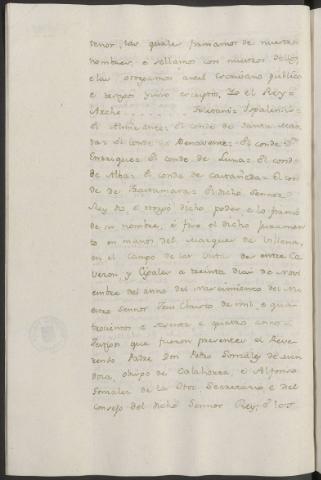 tenor, las quales firmamos de nuestros
nombres, e sellamos con nuestros sellos,
e las otorgamos antel escrivano publico
e testigos yuso escriptos, Yo el Rey=
Archs . . . . . . . Toletani= Ispalensis=
El Almirante= El conde de Santa Mar-
ta= El conde de Benavente= El conde Dn
Enrrique= El conde de Luna= El cond-
de Alba= El conde de castañeda= El con-
de de Trastamara= El dicho Sennor
Rey dió, e otorgó dicho poder, e lo firmó
de su nombre, é fizo el dicho juramen-
to en manos del Marques de Villena,
en el campo de las Vistas de entre Ca-
veron, y Cigales a treinta dias de Novi-
embre del anno del Nascimiento del Nu-
estro Sennor Jesu Christo de mil, e qua-
trocientos e sesenta e quatro annos=
Testigos que fueron presentes el Reve-
rendo Padre Don Pedro Gonzales de Men-
doza, obispo de Calahorra, é Alfonso
Gonzales de la Otoz Secretario e del
consejo del dicho Sennor Rey, é los